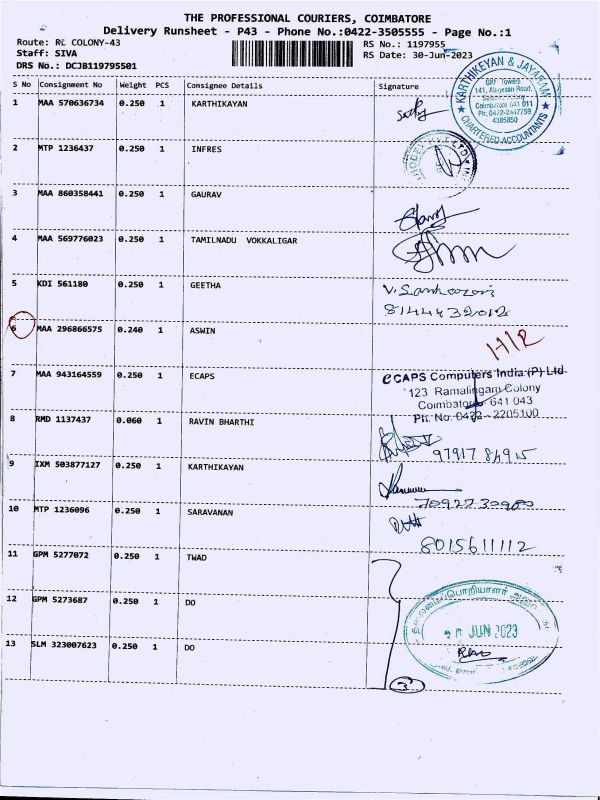 THE PROFESSIONAL COURIERS, COIMBATORE
Delivery Runsheet - P43 - Phone No.:0422-3505555 - Page No.:1
Route: RL COLONY-43 RS No.: 1197955
Staff: SIVA RS Date: 30-Jun-2023
DRS No.: DCJB119795501
S No Consignment No Weight PCS Consignee Details Signature
1 MAA 570636734 0.250 1 KARTHIKAYAN
KARTHIKEYAN & JAYARAM
GRF Towers
141, Alagesan Road,
Coimbatore 641 011
Ph: 0422-2447759
4385850
CHARTERED ACCOUNTANTS
2 MTP 1236437 0.250 1 INFRES
3 MAA 860358441 0.250 1 GAURAV
4 MAA 569776023 0.250 1 TAMILNADU VOKKALIGAR
5 KDI 561180 0.250 1 GEETHA
8144432012
6 MAA 296866575 0.240 1 ASWIN
7 MAA 943164559 0.250 1 ECAPS
eCAPS Computers India (P) Ltd
123 Ramalingam Colony
Coimbatore 641 043
Ph. No. 0422 - 2205100
8 RMD 1137437 0.060 1 RAVIN BHARTHI
9 IXM 503877127 0.250 1 KARTHIKAYAN
10 MTP 1236096 0.250 1 SARAVANAN
8015611112
11 GPM 5277072 0.250 1 TWAD
12 GPM 5273687 0.250 1 DO
JUN 2023
13 SLM 323007623 0.250 1 DO
3